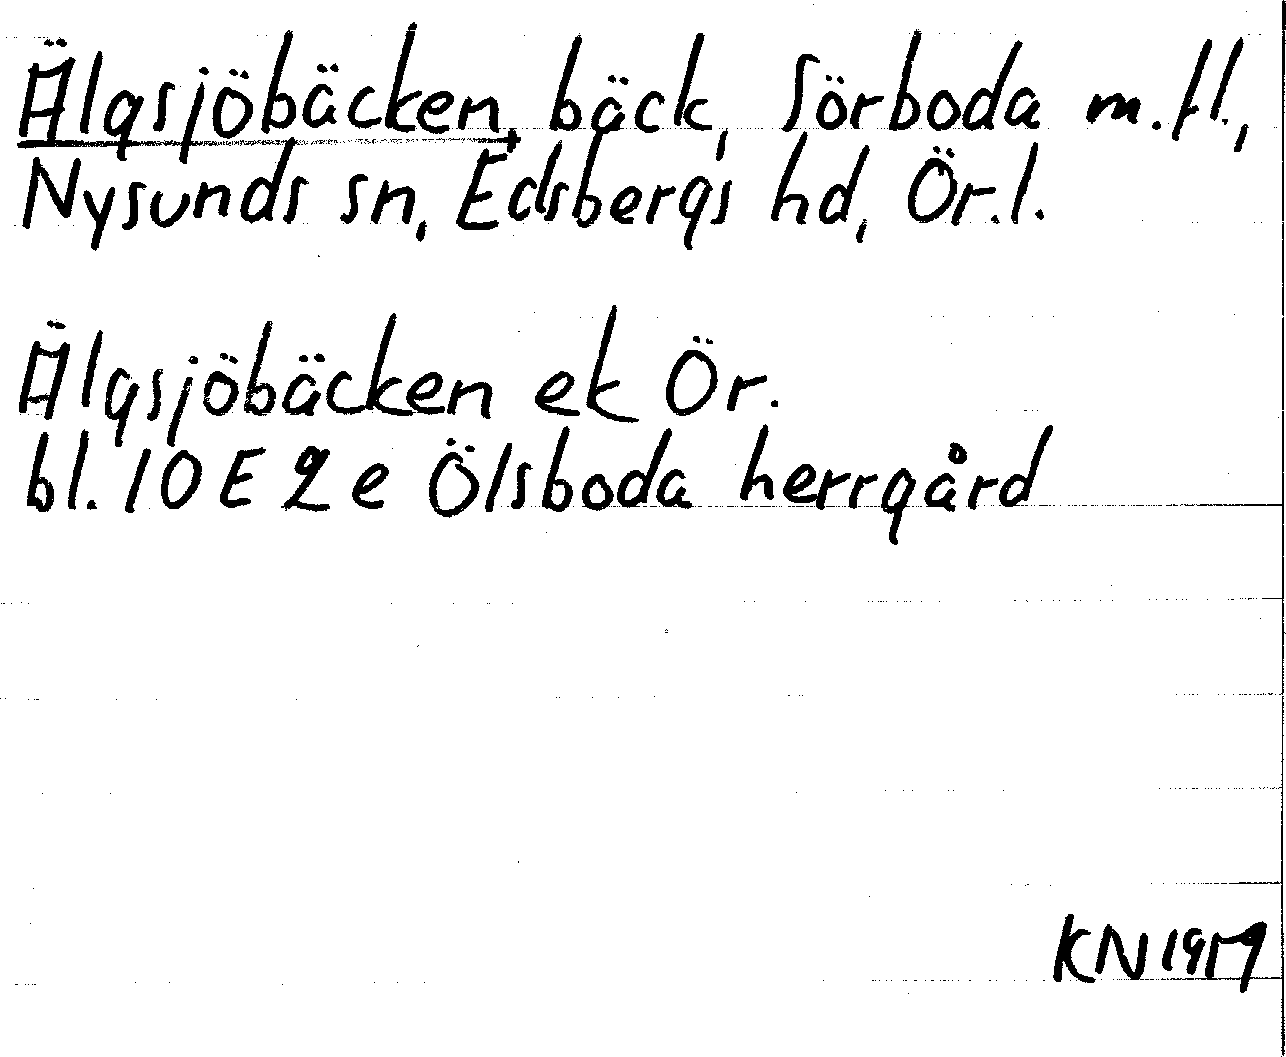 Älgsjöbäcken, bäck, Sörboda m.fl.,
Nysunds sn, Edsbergs hd, Ör.l.
Älgsjöbäcken ek Ör.
bl. 10 E 2 e Ölsboda herrgård
KN